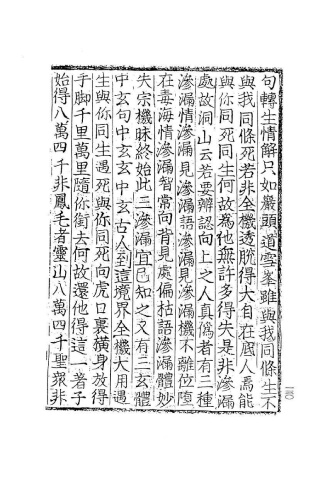 句轉生情解只如巖頭道雪峯雖與我同條生不
與我同條死若非全機透脫得大自在底人焉能
與你同死同生何故為他無許多得失是非滲漏
處故洞山云若要辨認向上之人真偽者有三種
滲漏情滲漏見滲漏語滲漏見滲漏機不離位墮
在毒海情滲漏智常向背見處偏枯語滲漏體妙
失宗機昧終始此三滲漏宜已知之又有三玄體
中玄句中玄玄中玄古人到這境界全機大用遇
生與你同生遇死與你同死向虎口裏橫身放得
手脚千里萬里隨你銜去何故還他得這一著子
始得八萬四千非鳳毛者靈山八萬四千聖衆非